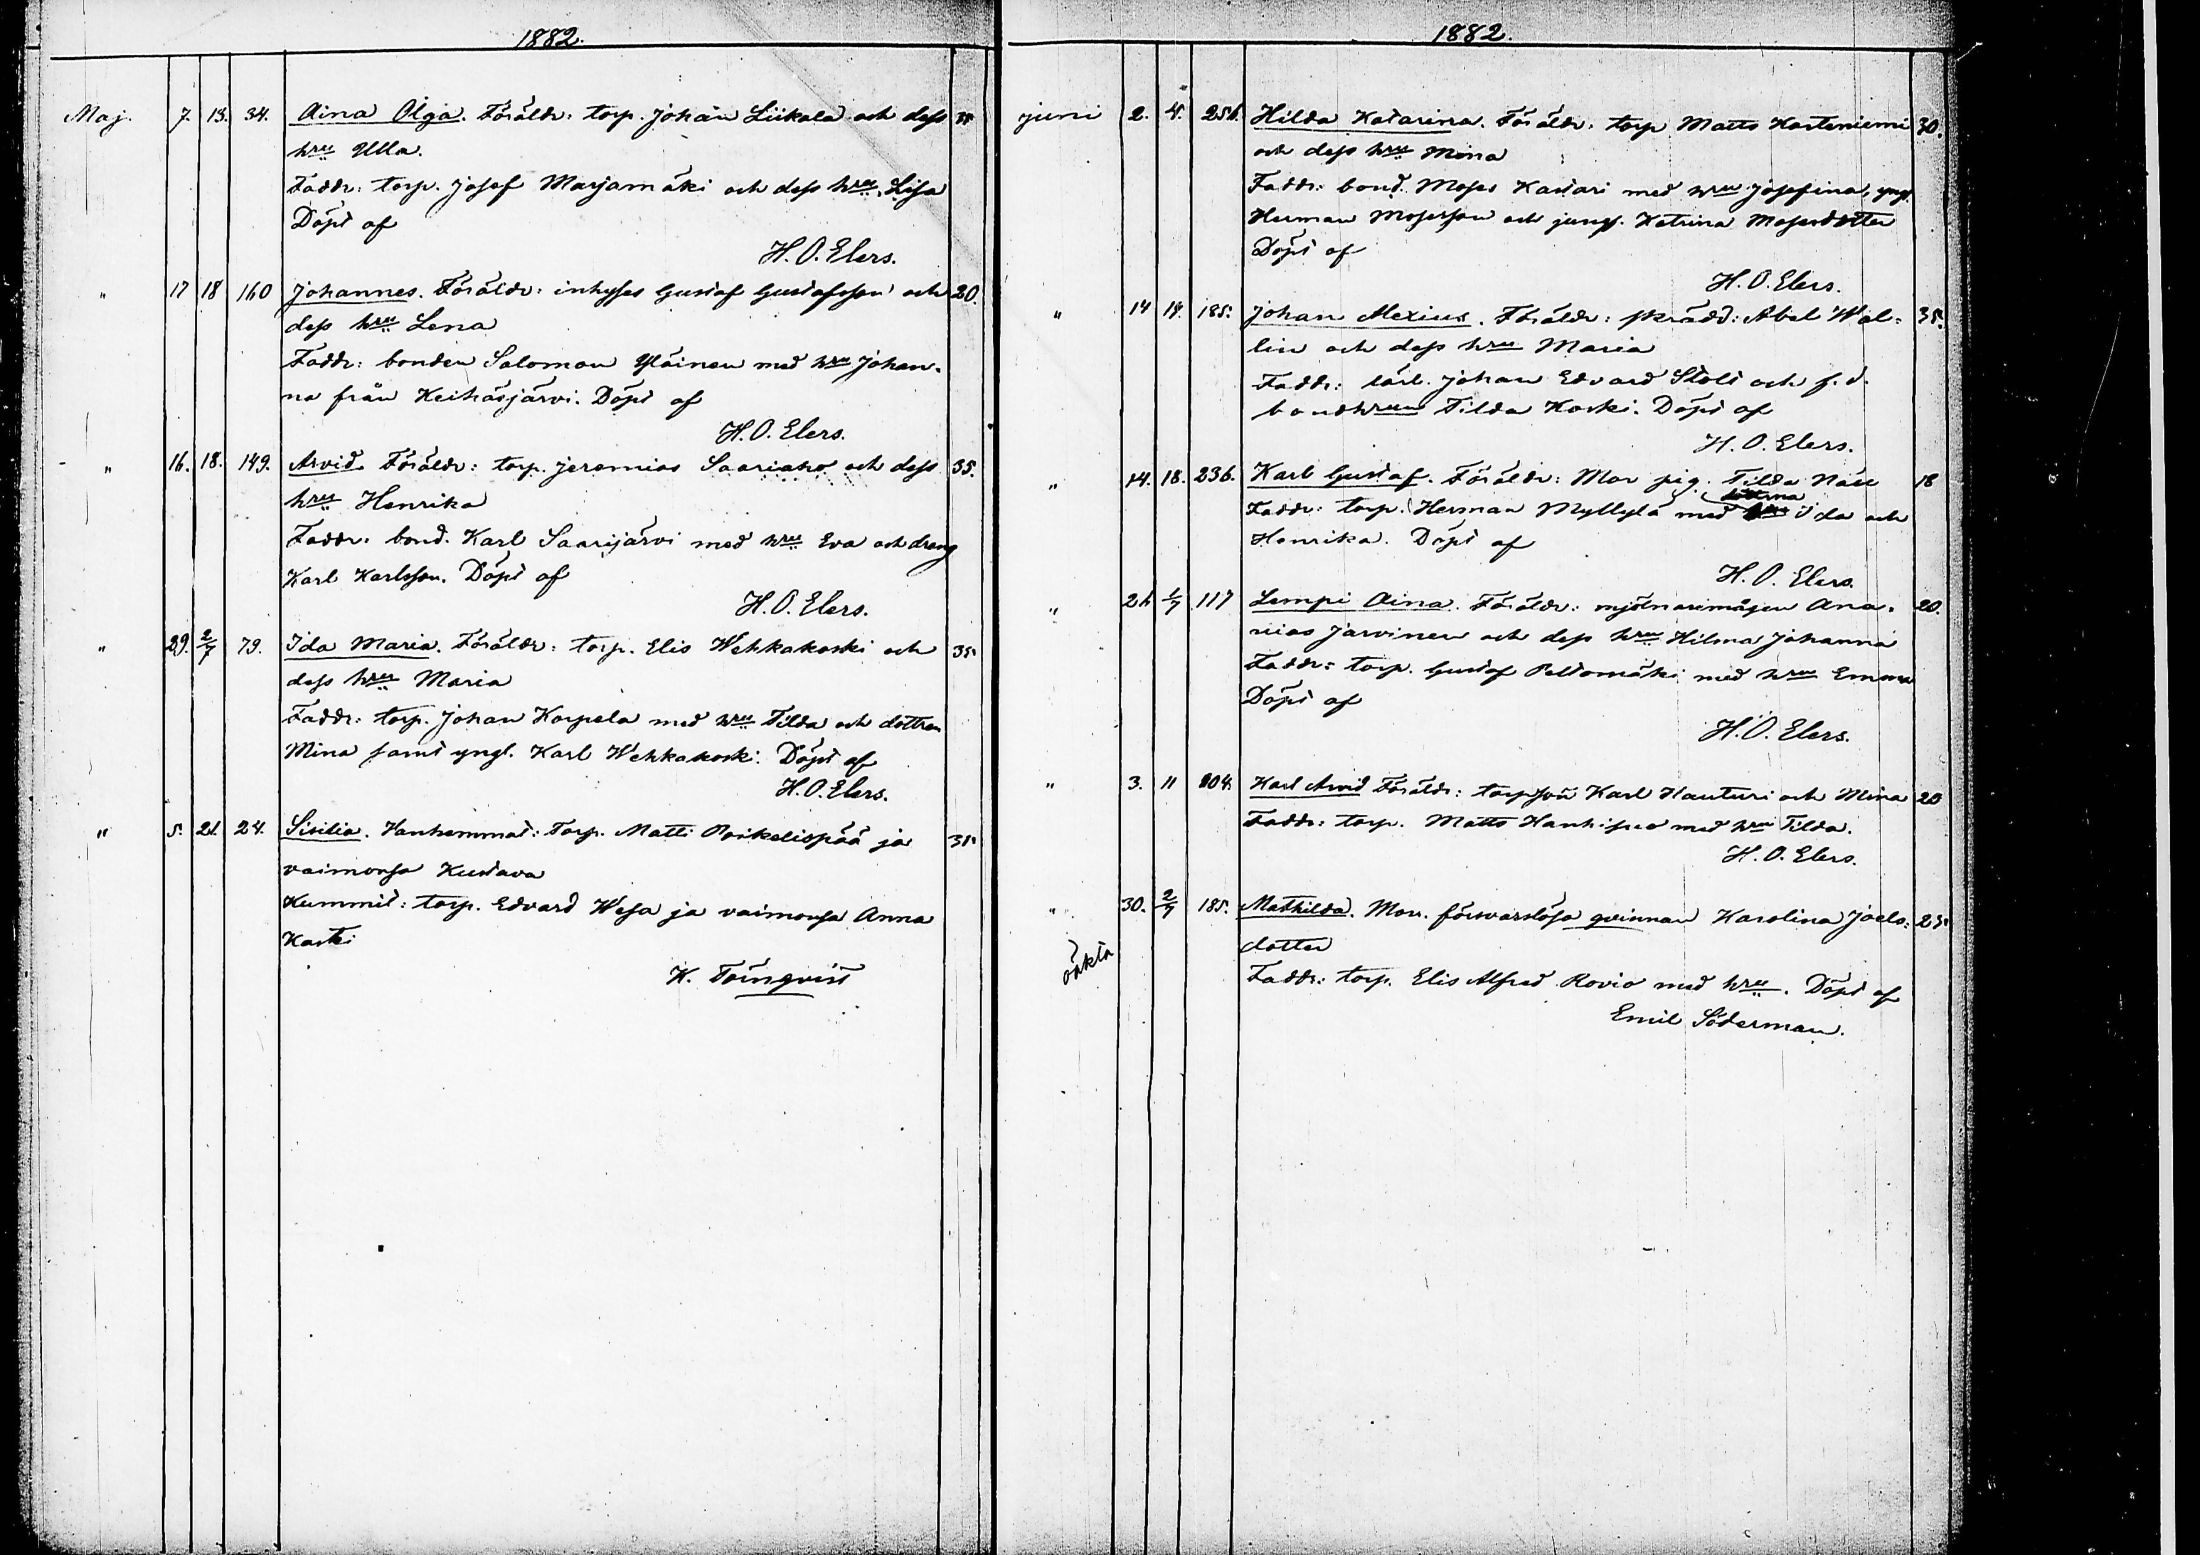 1882.
Maj. 7. 13. 34. Aina Olga. Föräldr: torp. Johan Liikala och dess 35
hru Ulla.
Faddr: torp. Josef Marjamäki och dess hru Lisa
Döpt af
H. O. Elers.
" 17 18 160 Johannes. Föräldr: inhyses Gustaf Gustafsson och 20.
dess hru Lena
Faddr: bonden Salomon Yläinen med hru Johan-
na från Keihäsjärvi. Döpt af
H. O. Elers.
" 16. 18. 149. Arvid. Föräldr: torp. Jeremias Saariaho och dess 35.
hru Henrika
Faddr: bond. Karl Saarijärvi med hru Eva och dreng
Karl Karlsson. Döpt af
H. O. Elers.
" 29. 2/7 79. Ida Maria. Föräldr: torp. Elis Wehkakoski och 35
dess hru Maria
Faddr: torp. Johan Korpela med hru Tilda och dottren
Mina samt yngl. Karl Wehkakoski. Döpt af
H. O. Elers.
" 5. 21. 24. Sisilia. Vanhemmat: Torp. Matti Poikelispää ja 35
vaimonsa Kustava
Kummit: torp. Edvard Wesa ja vaimonsa Anna
Koski
K. Törnqvist
1882.
juni 2. 4. 256. Hilda Katarina. Föräldr: torp Matts Kosteniemi 30.
och dess hru Mina
Faddr: bond. Moses Kastari med hru Josefina, yngl.
Herman Mosesson och jungf. Katrina Mosesdotter
Döpt af
H. O. Elers.
" 14 14. 185. Johan Alexius. Föräldr: skrädd: Abel Wal- 35.
lin och dess hru Maria
Faddr: lärl. Johan Edvard Stolt och f. d.
bondhrun Tilda Koski. Döpt af
H. O. Elers.
" 14. 18. 236. Karl Gustaf. Föräldr: Mor pig. Tilda Näsi 18
Faddr: torp. Herman Myllylä med döttrarna Ida och
Henrika. Döpt af
H. O. Elers.
" 21. 1/7 117 Lempi Aina. Föräldr: mjölnaremågen Ana- 20.
nias Järvinen och dess hru Hilma Johanna
Faddr: torp. Gustaf Peltomäki med hru Emma
Döpt af
H. O. Elers.
" 3. 11 204. Karl Arvid Föräldr: torpson Karl Hauturi och Mina 20
Faddr: torp. Matts Hanhisuo med hru Tilda.
H. O. Elers.
" 30. 2/7 185. Mathilda. Mor. försvarslösa qvinnan Karolina Joels- 25
oäkta dotter
Faddr: torp. Elis Alfred Rovio med hru. Döpt af
Emil Söderman.